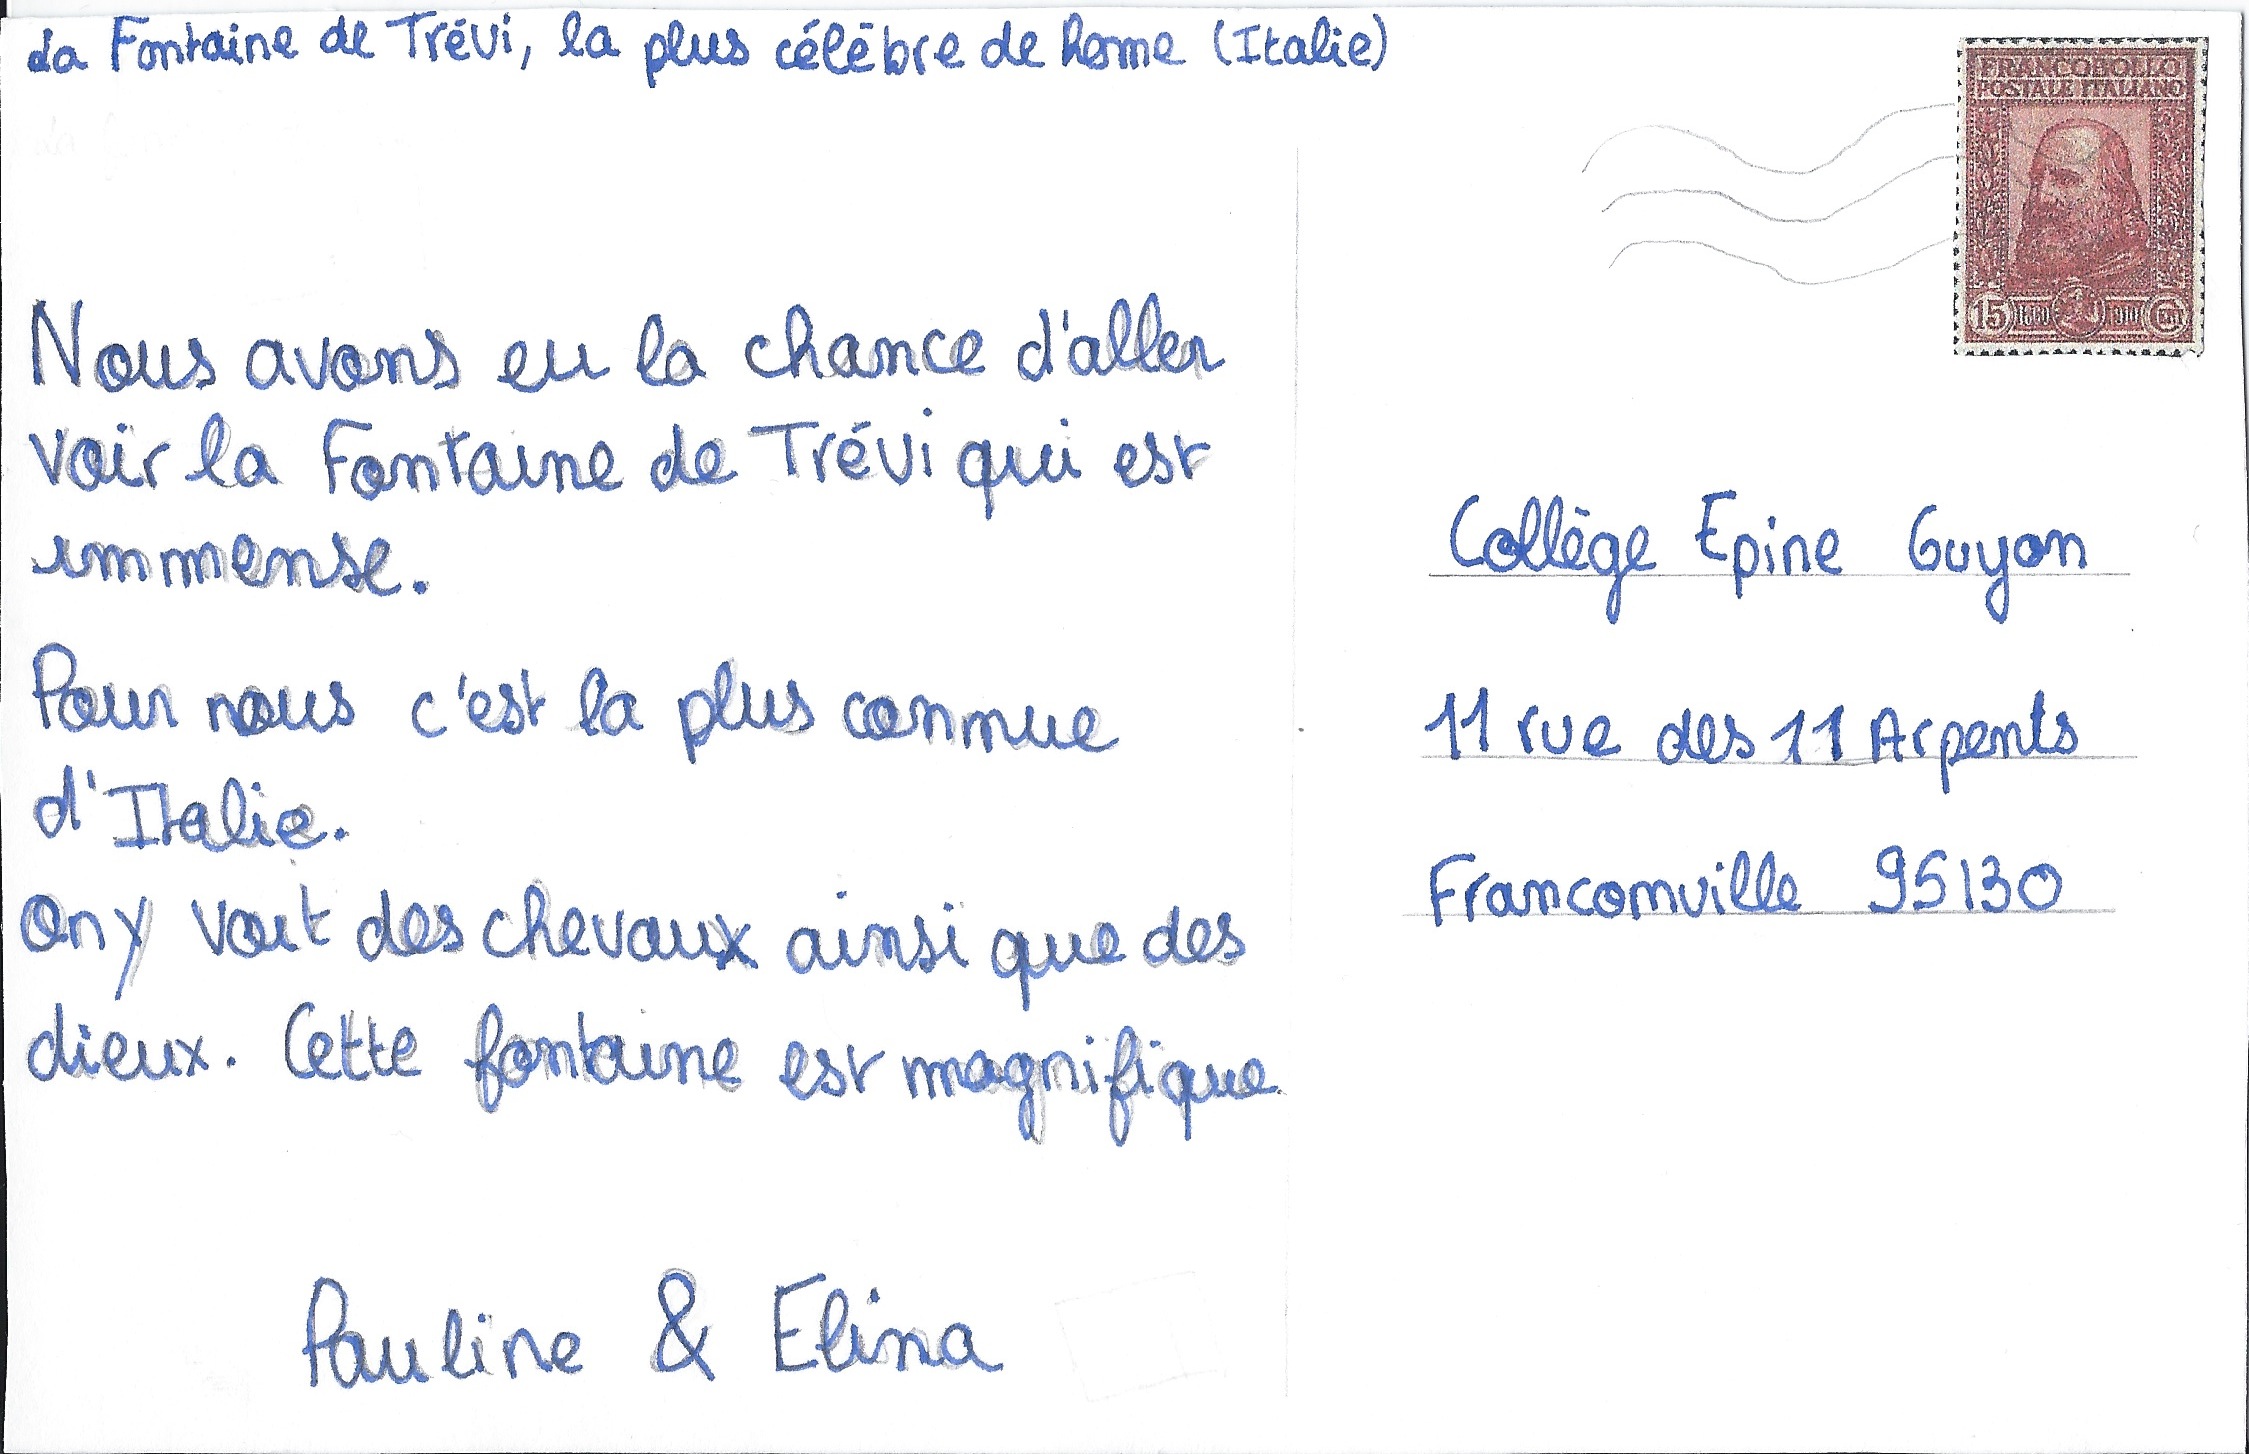 La Fontaine de Trévi, la plus célèbre de Rome (Italie)
FRANCOBOLLO
POSTALE ITALIANO
15
Nous avons eu la chance d'aller
voir la Fontaine de Trévi qui est
immense.
Pour nous c'est la plus connue
d'Italie.
On y voit des chevaux ainsi que des
dieux. Cette fontaine est magnifique
Pauline & Elina
Collège Epine Guyon
11 rue des 11 Arpents
Franconville 95130